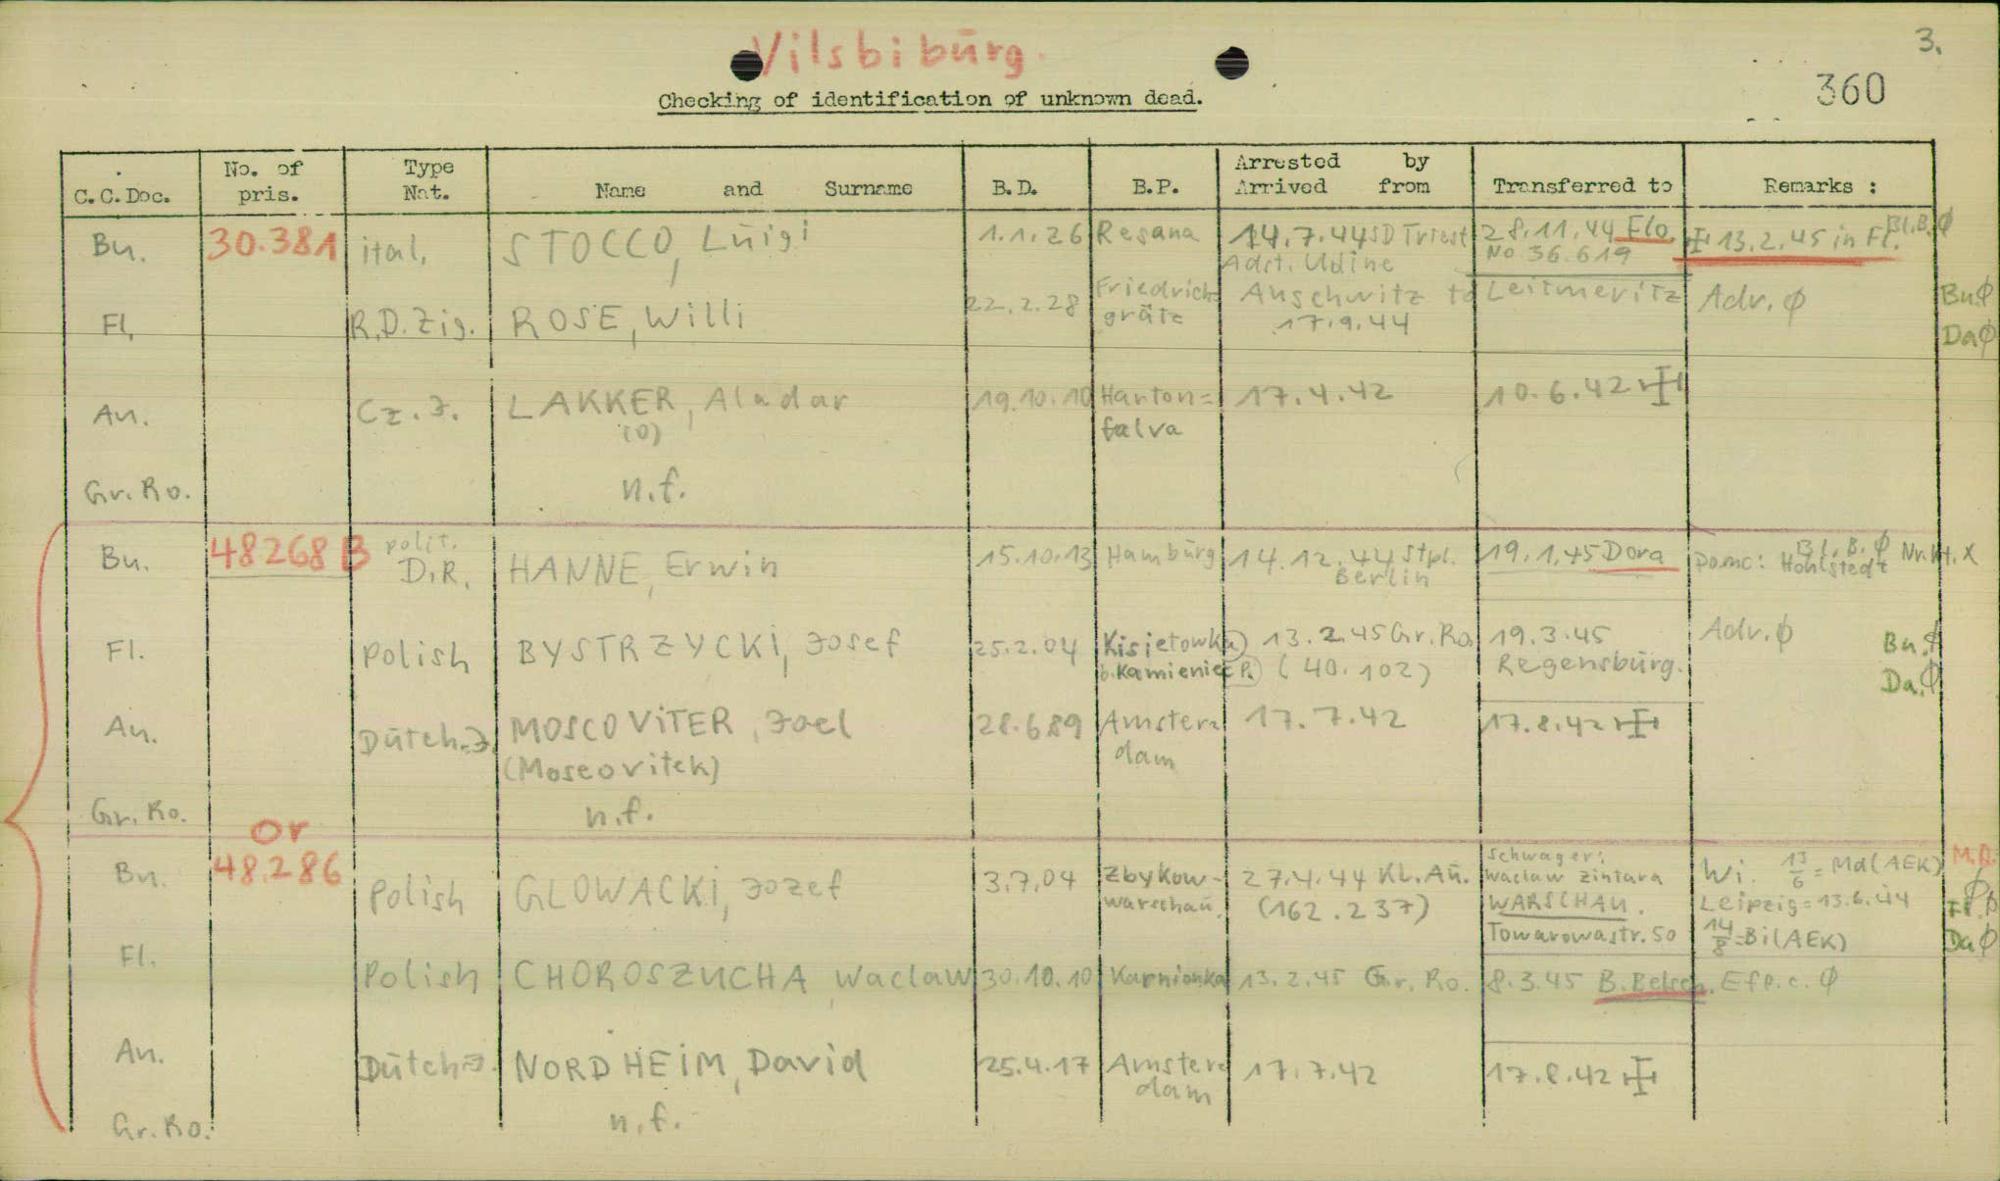 Vilsbibürg.
3.
Checking of identification of unknown dead.
360
C.C.Doc. No. of pris. Type Nat. Name and Surname B.D. B.P. Arrested by Arrived from Transferred to Remarks :
Bu. 30.381 ital. STOCCO, Lüigi 1.1.26 Resana 14.7.44 SD Triest 28.11.44 Flo. 13.2.45 in Fl. Bl.B. Ø
Adst. Udine No 36.619
Fl. R.D.Zig. ROSE, Willi 22.2.28 Friedrichs= Auschwitz to Leitmeritz Adv. Ø Bu.Ø
grätz 17.9.44 DaØ
An. Cz.J. LAKKER, Aladar 19.10.10 Hanton= 17.4.42 10.6.42
(0) falva
Gr.Ro. n.f.
Bu. 48268 B polit. D.R. HANNE, Erwin 15.10.13 Hambürg 14.12.44 Stpl. 19.1.45 Dora Bl.B. Ø
Berlin Hohlstedt
Fl. Polish BYSTRZYCKI, Josef 25.2.04 Kisielowka 13.2.45 Gr.Ro. 19.3.45 Adv. Ø Bu.Ø
b.Kamieniec P. (40.102) Regensbürg. Da.Ø
An. Dütch.J. MOSCOVITER, Joel 28.6.89 Amster= 17.7.42 17.8.42
(Moscovitek) dam
Gr.Ro. n.f.
or
Bu. 48.286 Polish GLOWACKI, Jozef 3.7.04 Zbykow- 27.4.44 KL.Aü. Schwager: Wi. 13/6 = Md(AEK)
warschaü. (162.237) Waclaw Zintara Leipzig=13.6.44
WARSCHAU. 14/8=Bi(AEK) DaØ
Towarowastr.50
Fl. Polish CHOROSZUCHA Waclaw 30.10.10 Karnionka 13.2.45 Gr.Ro. 8.3.45 B.Belsen. Efp.c. Ø
An. Dütch J. NORDHEIM, David 25.4.17 Amster= 17.7.42 17.8.42
dam
Gr.Ro. n.f.